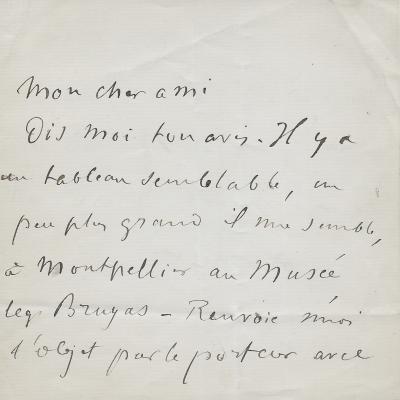 Mon cher ami
Dis moi ton avis. Il y a
un tableau semblable, un
peu plus grand il me semble,
à Montpellier au Musée
leg. Bruyas – Renvoie m'oi
l'objet par le porteur avec